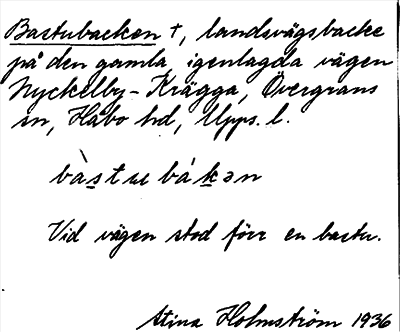 Bastubacken †, landsvägsbacke
på den gamla, igenlagda vägen
Nyckelby - Krägga, Övergrans
sn, Håbo hd, Upps. l.
bàstu bákən
Vid vägen stod förr en bastu.
Stina Holmström 1936